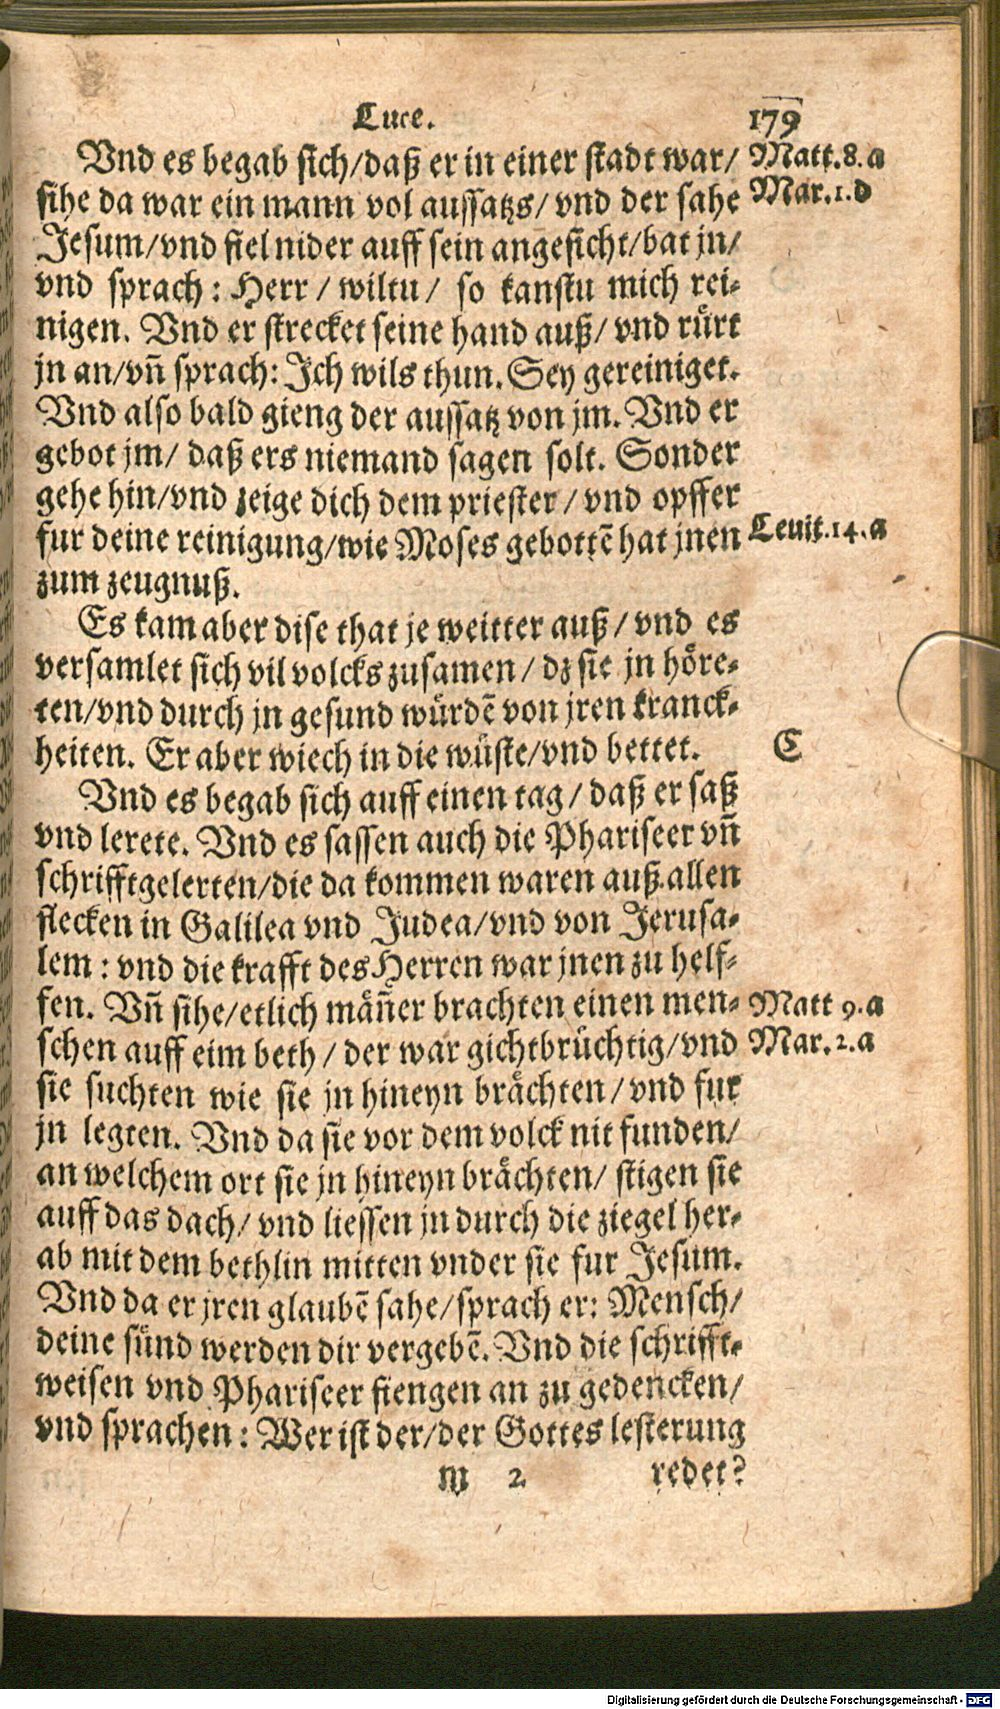 Luce. 179
Vnd es begab sich/daß er in einer stadt war/ Matt.8.a
sihe da war ein mann vol aussatzs/ vnd der sahe Mar.1.d
Jesum/vnd fiel nider auff sein angesicht/bat jn/
vnd sprach: Herr/ wiltu/ so kanstu mich rei-
nigen. Vnd er strecket seine hand auß/ vnd rürt
jn an/vñ sprach: Ich wils thun. Sey gereiniget.
Vnd also bald gieng der aussatz von jm. Vnd er
gebot jm/ daß ers niemand sagen solt. Sonder
gehe hin/vnd zeige dich dem priester/ vnd opffer
fur deine reinigung/wie Moses gebottẽ hat jnen Leuit.14.a
zum zeugnuß.
Es kam aber dise that je weitter auß/ vnd es
versamlet sich vil volcks zusamen/ dz sie jn höre-
ten/vnd durch jn gesund würdẽ von jren kranck-
heiten. Er aber wiech in die wüste/vnd bettet. C
Vnd es begab sich auff einen tag/ daß er saß
vnd lerete. Vnd es sassen auch die Phariseer vñ
schrifftgelerten/die da kommen waren auß allen
flecken in Galilea vnd Judea/vnd von Jerusa-
lem: vnd die krafft des Herren war jnen zu helf-
fen. Vñ sihe/etlich mäñer brachten einen men- Matt 9.a
schen auff eim beth/ der war gichtbrüchtig/vnd Mar.2.a
sie suchten wie sie jn hineyn brächten/ vnd fur
jn legten. Vnd da sie vor dem volck nit funden/
an welchem ort sie jn hineyn brächten/ stigen sie
auff das dach/ vnd liessen jn durch die ziegel her-
ab mit dem bethlin mitten vnder sie fur Jesum.
Vnd da er jren glaubẽ sahe/sprach er: Mensch/
deine sünd werden dir vergebẽ. Vnd die schrifft-
weisen vnd Phariseer fiengen an zu gedencken/
vnd sprachen: Wer ist der/der Gottes lesterung
M 2 redet?
Digitalisierung gefördert durch die Deutsche Forschungsgemeinschaft - DFG